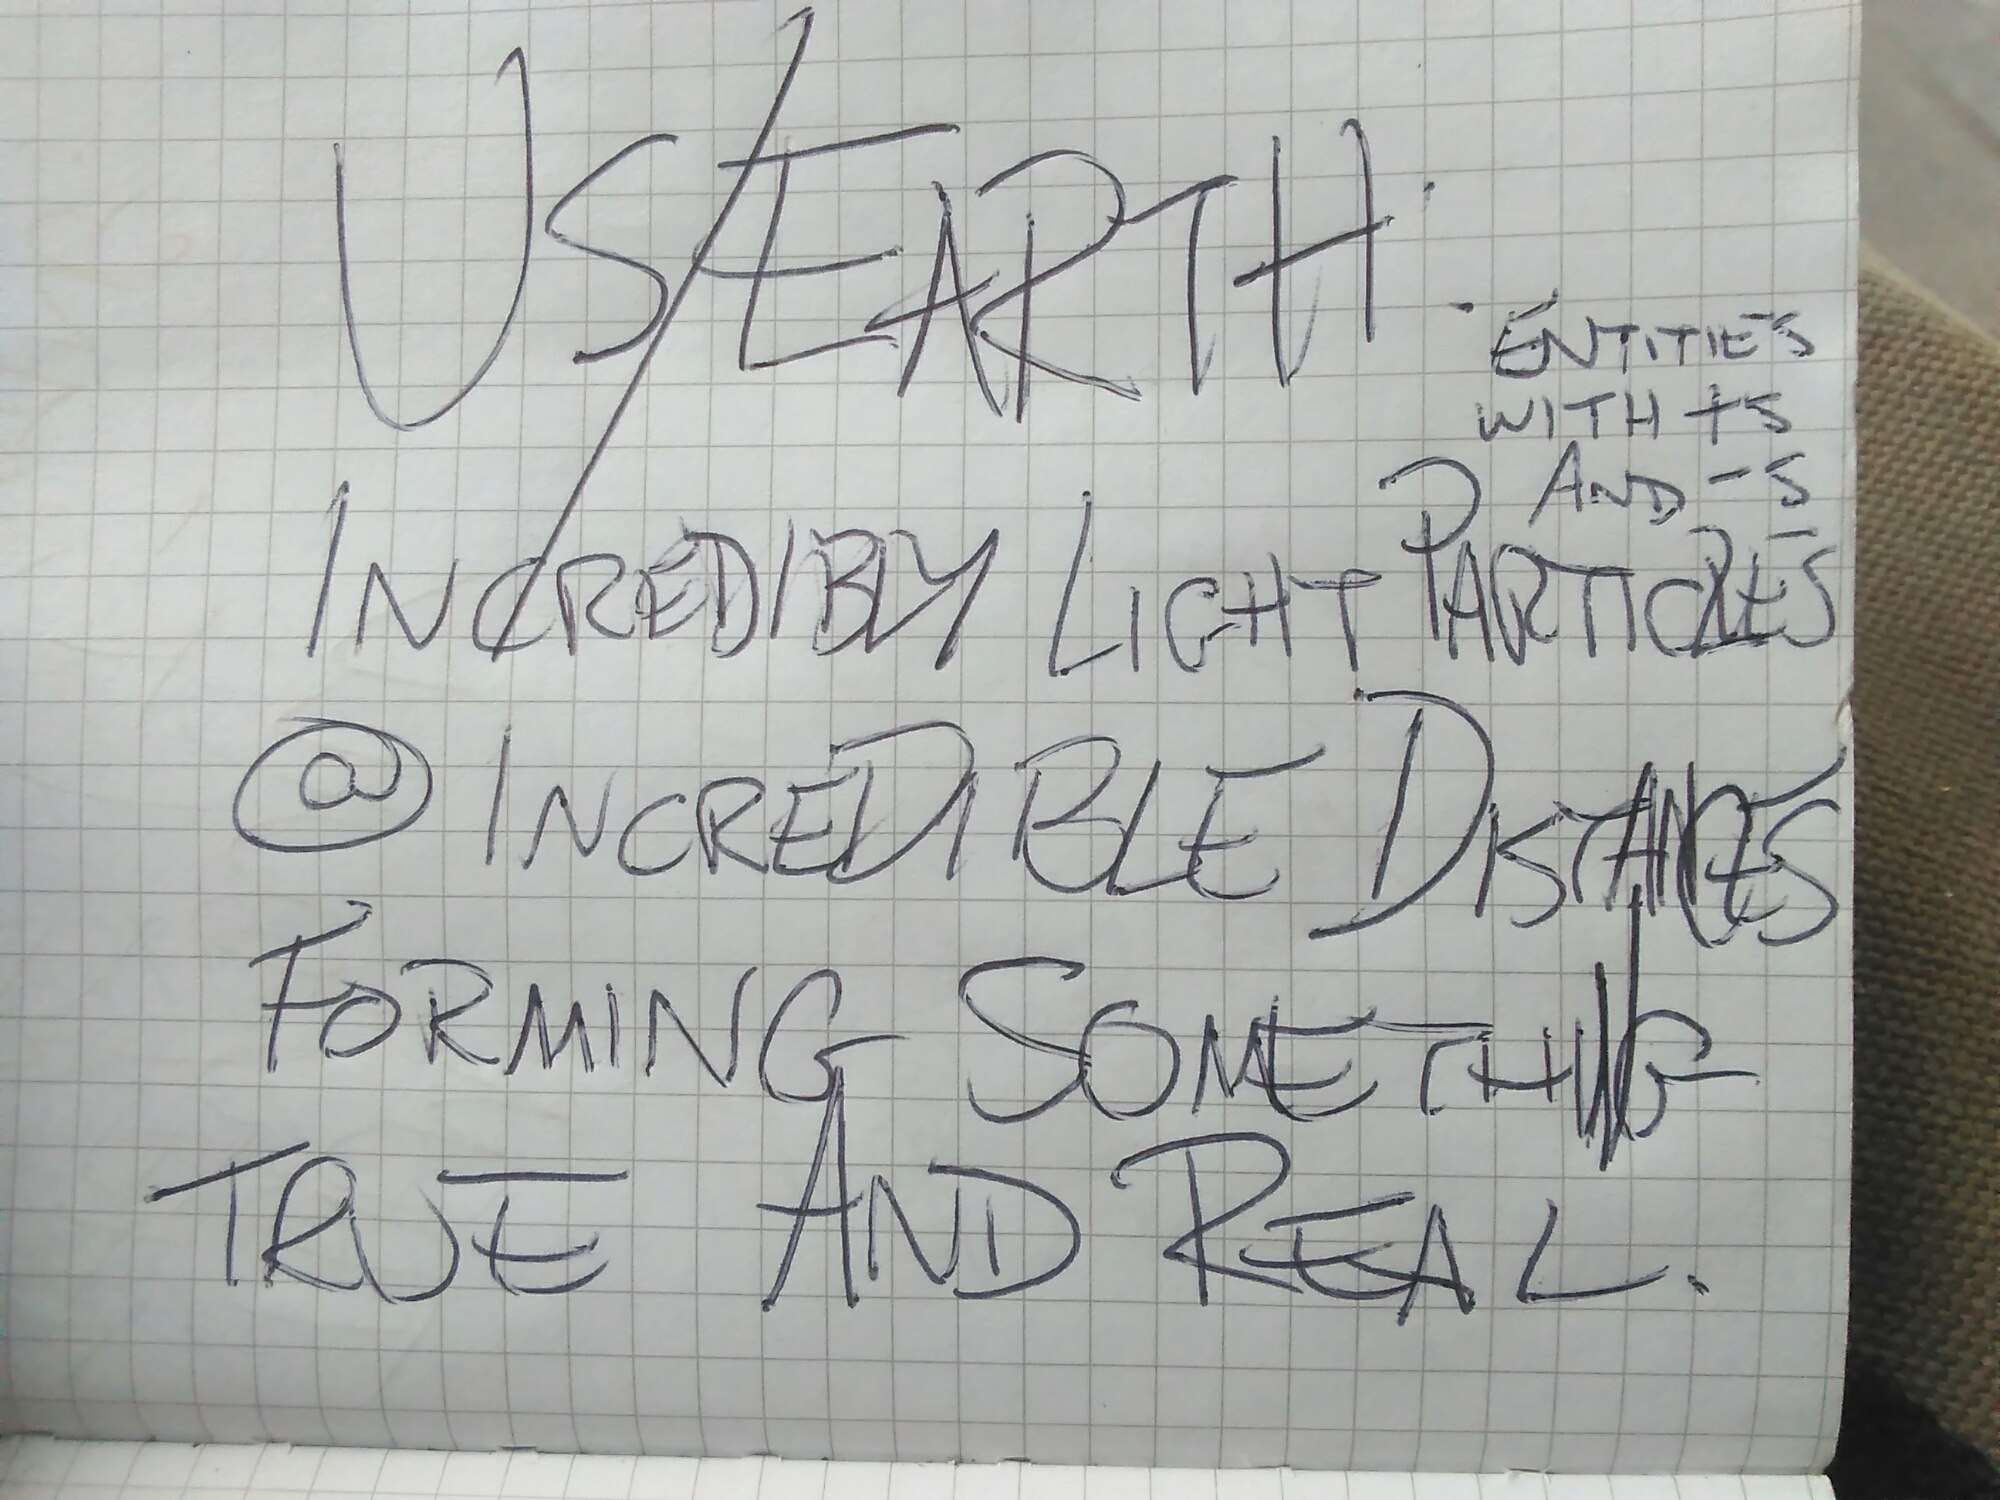 US/EARTH:
ENTITIES
WITH +S
AND -S
INCREDIBLY LIGHT PARTICLES
@ INCREDIBLE DISTANCES
FORMING SOMETHING
TRUE AND REAL.